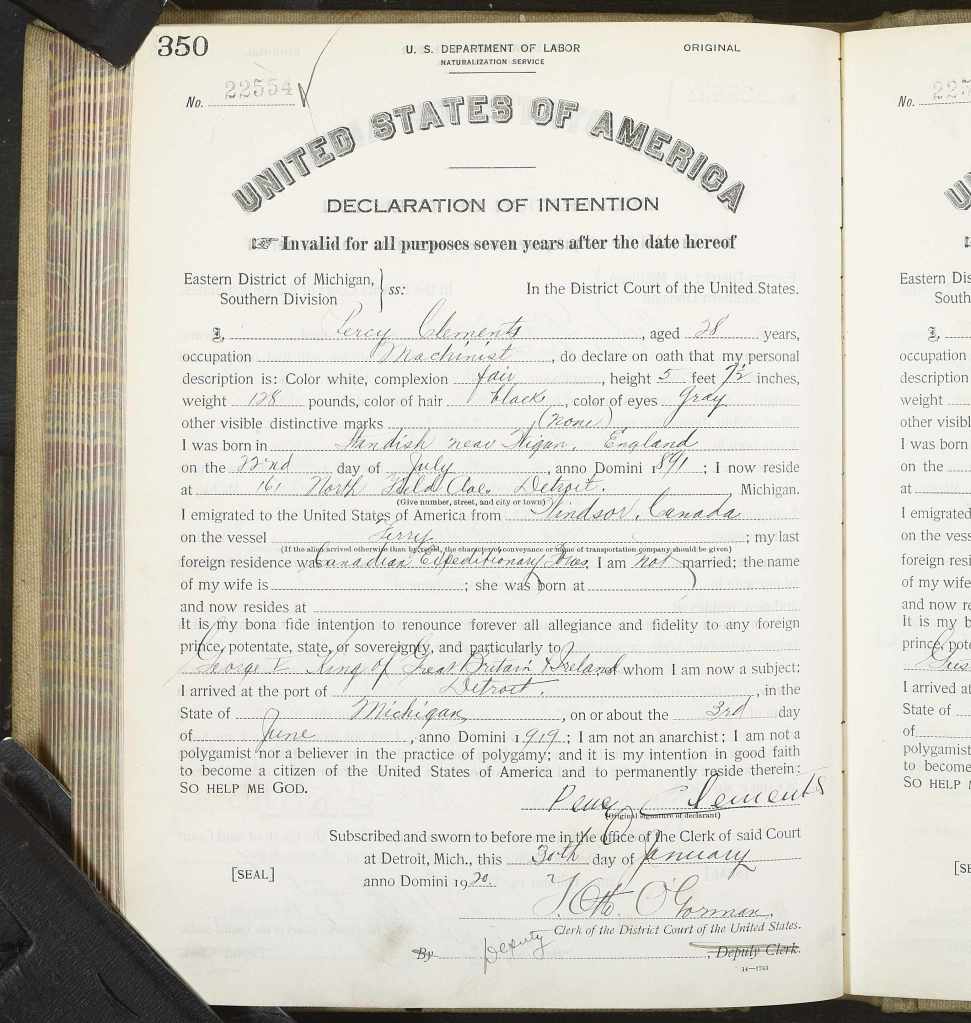 350
U. S. DEPARTMENT OF LABOR
ORIGINAL
NATURALIZATION SERVICE
No. 22554
UNITED STATES OF AMERICA
DECLARATION OF INTENTION
Invalid for all purposes seven years after the date hereof
Eastern District of Michigan, } ss:
Southern Division
In the District Court of the United States.
I, Percy Clements, aged 28 years,
occupation Machinist, do declare on oath that my personal
description is: Color white, complexion fair, height 5 feet 7½ inches,
weight 128 pounds, color of hair black, color of eyes Gray
other visible distinctive marks (none)
I was born in Standish near Wigan, England
on the 22nd day of July, anno Domini 1891; I now reside
at 161 North Field Ave. Detroit., Michigan.
(Give number, street, and city or town)
I emigrated to the United States of America from Windsor, Canada
on the vessel Ferry; my last
(If the alien arrived otherwise than by vessel, the character of conveyance or name of transportation company should be given)
foreign residence was Canadian Expeditionary Forces; I am not married; the name
of my wife is ; she was born at
and now resides at
It is my bona fide intention to renounce forever all allegiance and fidelity to any foreign
prince, potentate, state, or sovereignty, and particularly to
George V King of Great Britain & Ireland of whom I am now a subject;
I arrived at the port of Detroit., in the
State of Michigan, on or about the 3rd day
of June, anno Domini 1919; I am not an anarchist; I am not a
polygamist nor a believer in the practice of polygamy; and it is my intention in good faith
to become a citizen of the United States of America and to permanently reside therein:
SO HELP ME GOD.
Percy Clements
(Original signature of declarant)
Subscribed and sworn to before me in the office of the Clerk of said Court
at Detroit, Mich., this 30th day of January
[SEAL]
anno Domini 1920
O'Gorman.
Clerk of the District Court of the United States.
By Deputy, Deputy Clerk.
14—1763
No. 225
Eastern Dis
South
I,
occupation
description
weight
other visibl
I was born
on the
at
I emigrated
on the vess
foreign resi
of my wife
and now re
It is my b
prince, pote
I arrived at
State of
of
polygamist
to become
SO HELP M
[SE